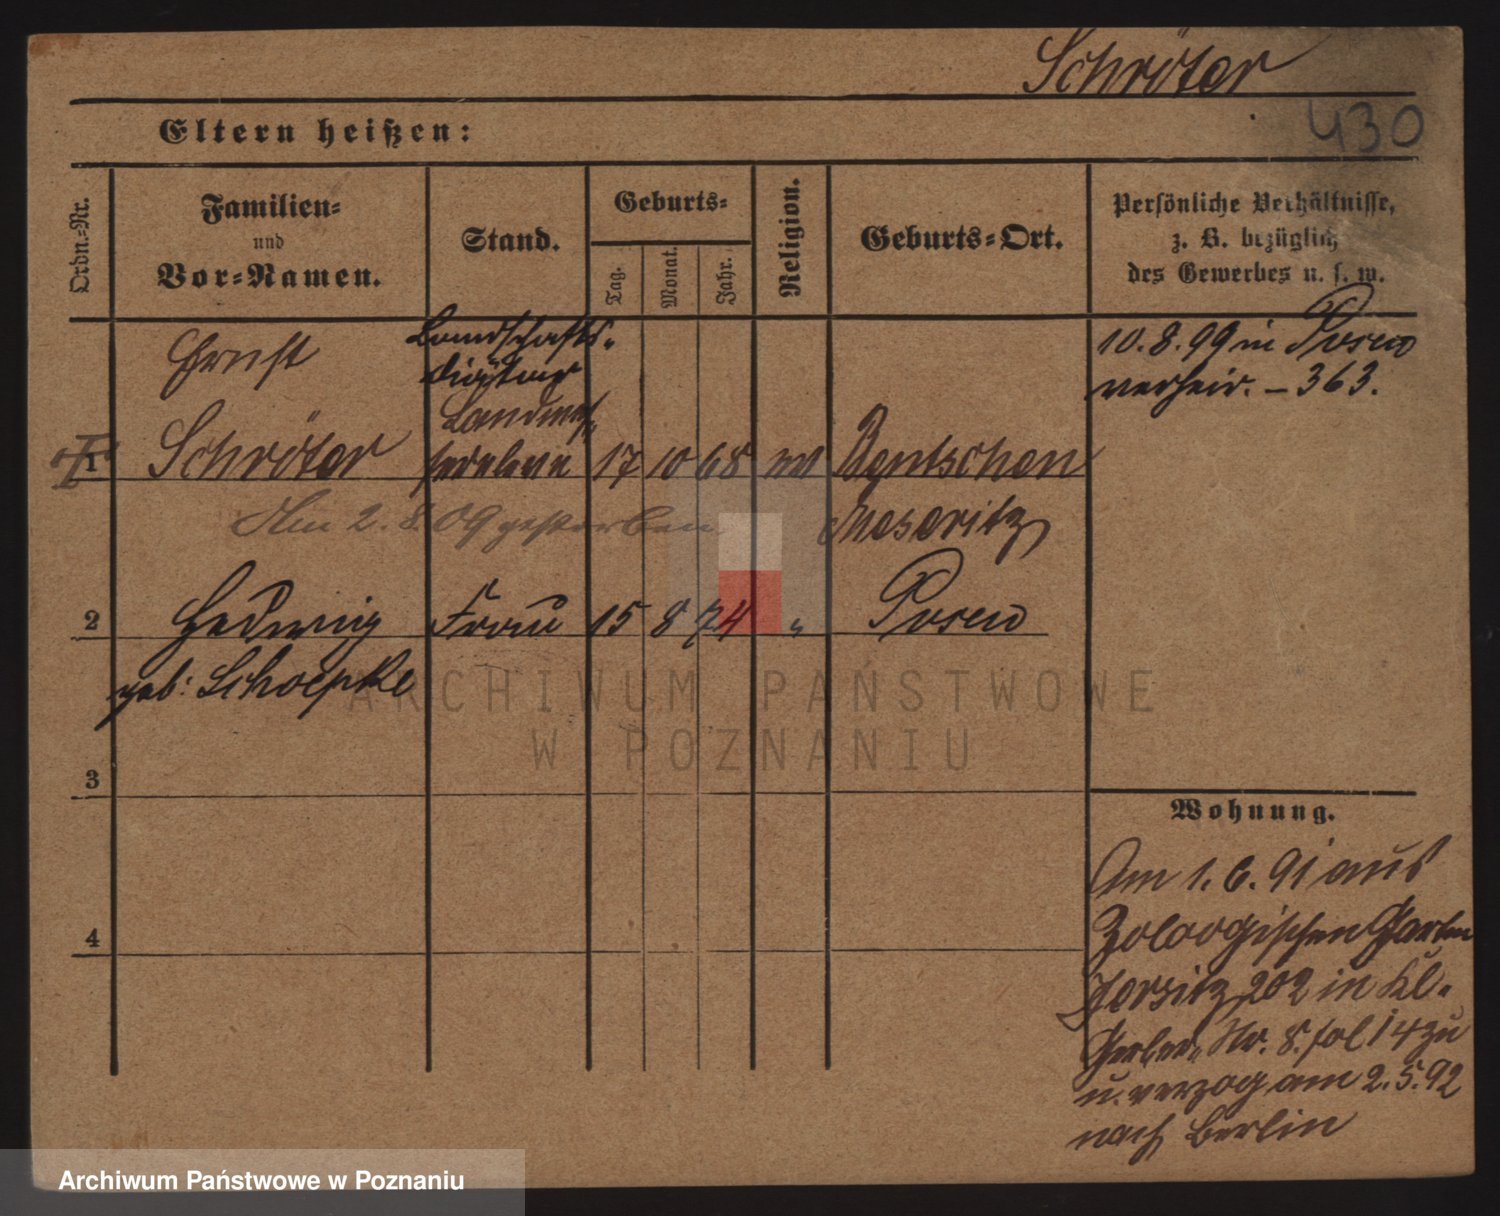 Schröter
430
Eltern heißen:
Ordn.=Nr.
Familien=
und
Vor=Namen.
Stand.
Geburts=
Tag.
Monat.
Jahr.
Religion.
Geburts=Ort.
Persönliche Verhältnisse,
z. B. bezüglich
des Gewerbes u. s. w.
Ernst
Landschafts-
diätar
10.8.99 in Posen
verheir. – 363.
Landmes-
1
Schröter
17
10
68
Bentschen
Am 2. 8. 09 gestorben
Meseritz
2
Hedwig
Frau
15
8
74
"
Posen
geb: Schoepke
3
Wohnung.
Am 1. 6. 91 aus
Zoloogischen Garten
4
202 in Kl.
Gerber Nr. 8. fol 14 zu
u. verzog am 2. 5. 92
nach Berlin
ARCHIWUM PAŃSTWOWE
W POZNANIU
Archiwum Państwowe w Poznaniu